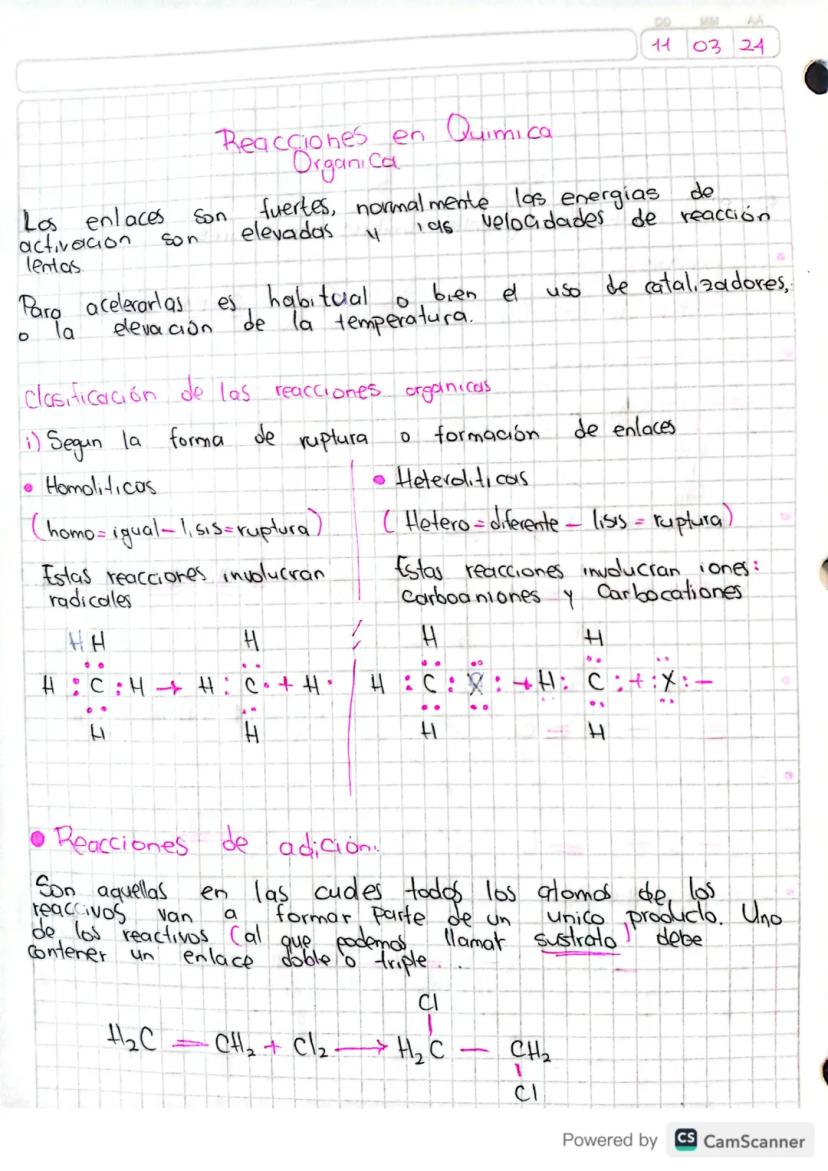 DD MM AA
11 03 24
Reacciones en Quimica
Organica
Los enlaces son fuertes, normalmente las energias de
activación son elevadas y las velocidades de reacción
lentas.
Para acelerarlas es habitual o bien el uso de catalizadores,
o la elevación de la temperatura.
Clasificación de las reacciones organicas
i) Segun la forma de ruptura o formación de enlaces
• Homoliticas
(homo=igual-lisis=ruptura)
Estas reacciones involucran
radicales
H H H
H : C : H → H : C · + H ·
H H
• Heteroliticas
(Hetero=diferente - lisis = ruptura)
Estas reacciones involucran iones:
Carboaniones y Carbocationes
H H
H : C : X : → H : C : + : X : -
H H
• Reacciones de adición.
Son aquellas en las cuales todos los atomos de los
reactivos van a formar parte de un unico producto. Uno
de los reactivos (al que podemos llamar sustrato) debe
contener un enlace doble o triple...
Cl
H₂C = CH₂ + Cl₂ → H₂C - CH₂
Cl
Powered by CS CamScanner